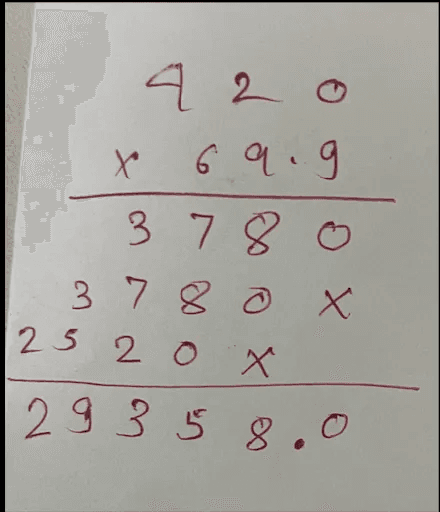 420
x 69.9
3780
3780x
2520x
29358.0